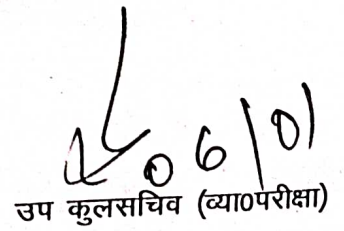 06/01
उप कुलसचिव (व्या0परीक्षा)